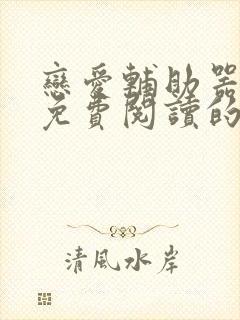 戀愛輔助器
免費閱讀的
清風水岸